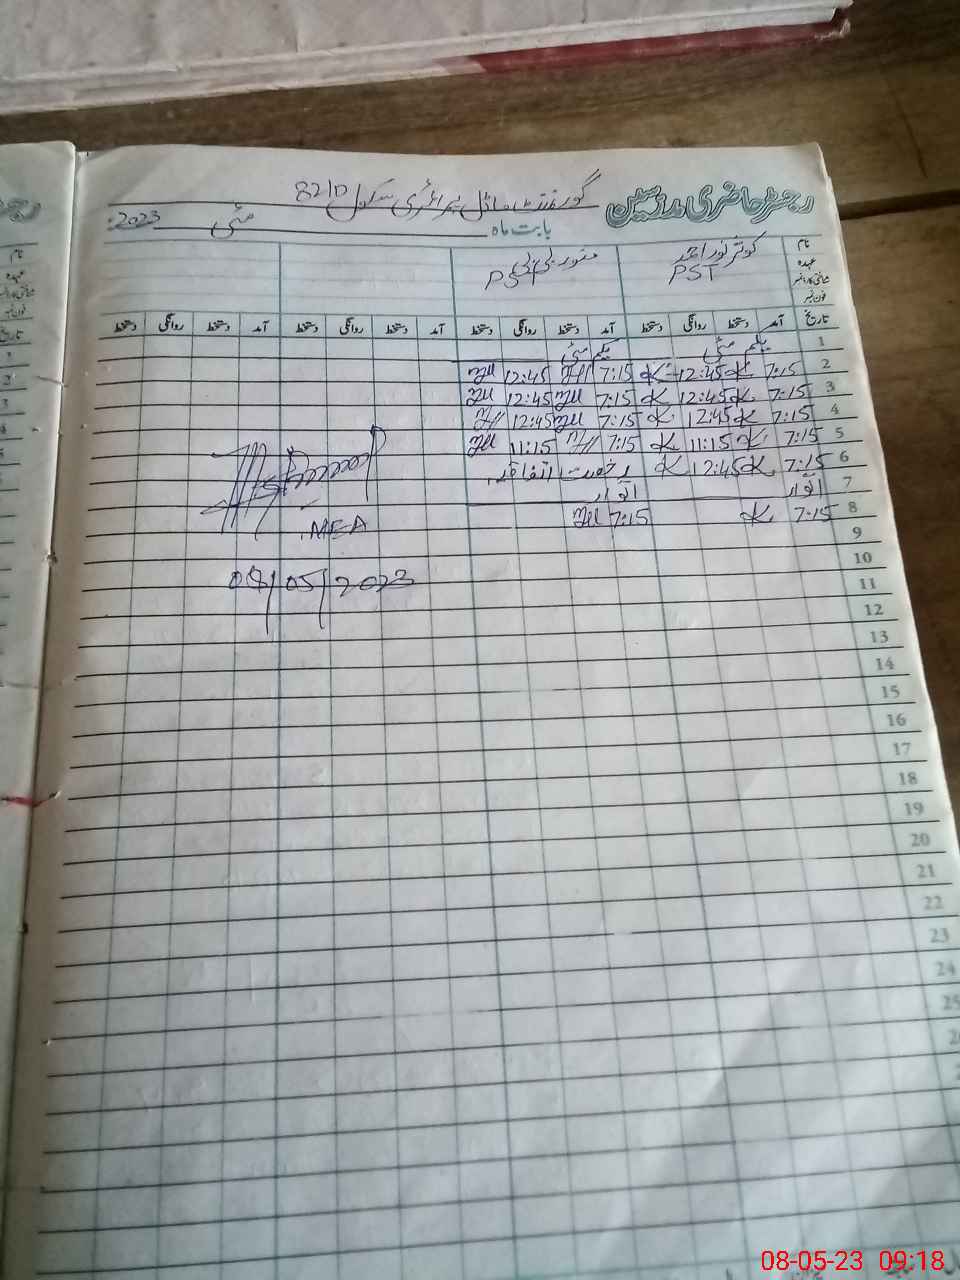 رجسٹر حاضری مدرسین گورنمنٹ ماڈل پرائمری سکول 82/D
بابت ماہ مئی 2023
نام کوثر نور احمد منور بی بی
عہدہ PST PST
شناختی کارڈ نمبر
فون نمبر
تاریخ آمد دستخط روانگی دستخط آمد دستخط روانگی دستخط آمد دستخط روانگی دستخط آمد دستخط روانگی دستخط
1 یکم مئی یکم مئی
2 7:15 K 12:45 K 7:15 12:45
3 7:15 K 12:45 K 7:15 12:45
4 7:15 K 12:45 K 7:15 12:45
5 7:15 K 11:15 K 7:15 11:15
6 7:15 K 12:45 K رخصت اتفاقیہ
7 اتوار اتوار
8 7:15 K 7:15
9
10
11
12
13
14
15
16
17
18
19
20
21
22
23
24
25
MEA
08/05/2023
08-05-23 09:18